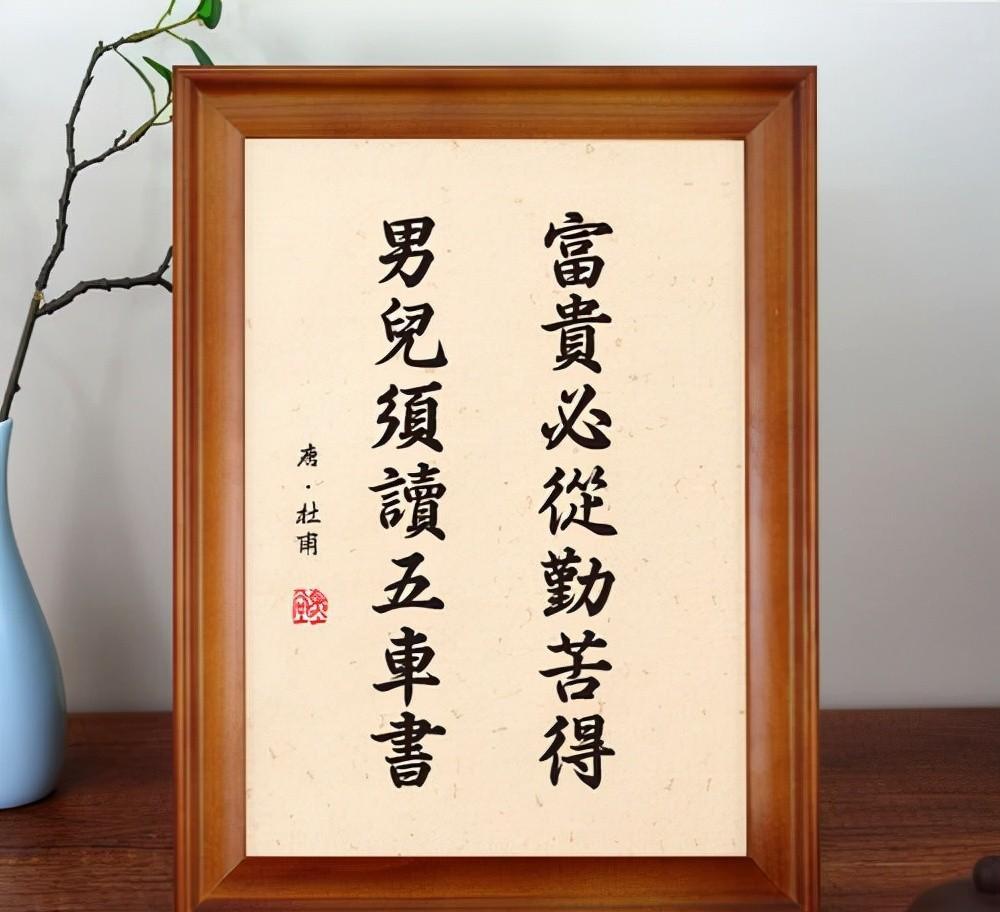 富貴必從勤苦得
男兒須讀五車書
唐·杜甫